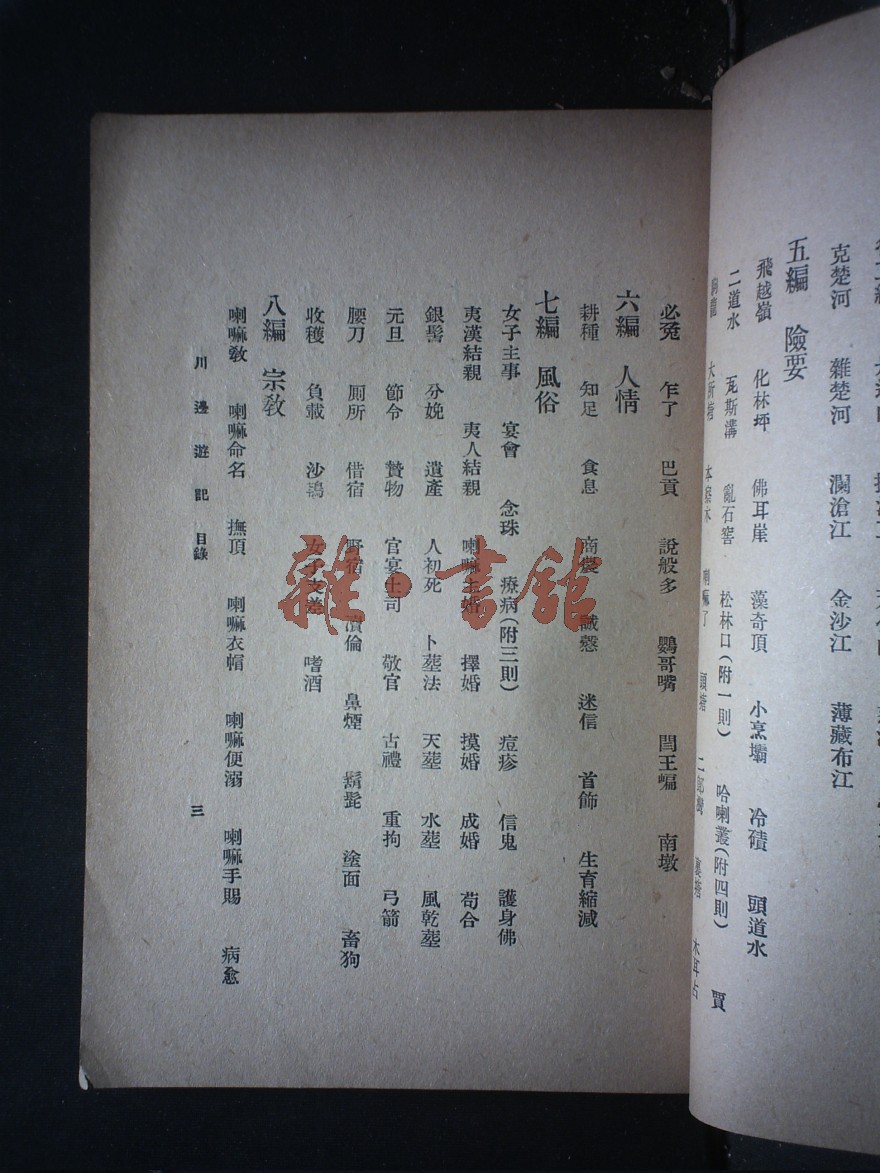 克楚河 雜楚河 瀾滄江 金沙江 薄藏布江
五編 險要
飛越嶺 化林坪 佛耳崖 藻奇頂 小烹壩 冷磧 頭道水
二道水 瓦斯溝 亂石窖 松林口(附一則) 哈喇叢(附四則) 賈
喇嘛了 頭塘 裏塘
必冤 乍了 巴貢 說般多 鸚哥嘴 閆王碥 南墩
六編 人情
耕種 知足 食息 商農 誠愨 迷信 首飾 生育縮減
七編 風俗
女子主事 宴會 念珠 療病(附三則) 痘疹 信鬼 護身佛
夷漢結親 夷人結親 喇嘛主婚 擇婚 摸婚 成婚 苟合
銀髻 分娩 遺產 人初死 卜塟法 天塟 水塟 風乾塟
元旦 節令 贄物 官宴土司 敬官 古禮 重拘 弓箭
腰刀 厠所 借宿 野宿 瀆倫 鼻煙 鬚髭 塗面 畜狗
收穫 負載 沙鴇 女子支差 嗜酒
八編 宗教
喇嘛教 喇嘛命名 撫頂 喇嘛衣帽 喇嘛便溺 喇嘛手賜 病愈
川邊遊記 目錄 三
雜·書館